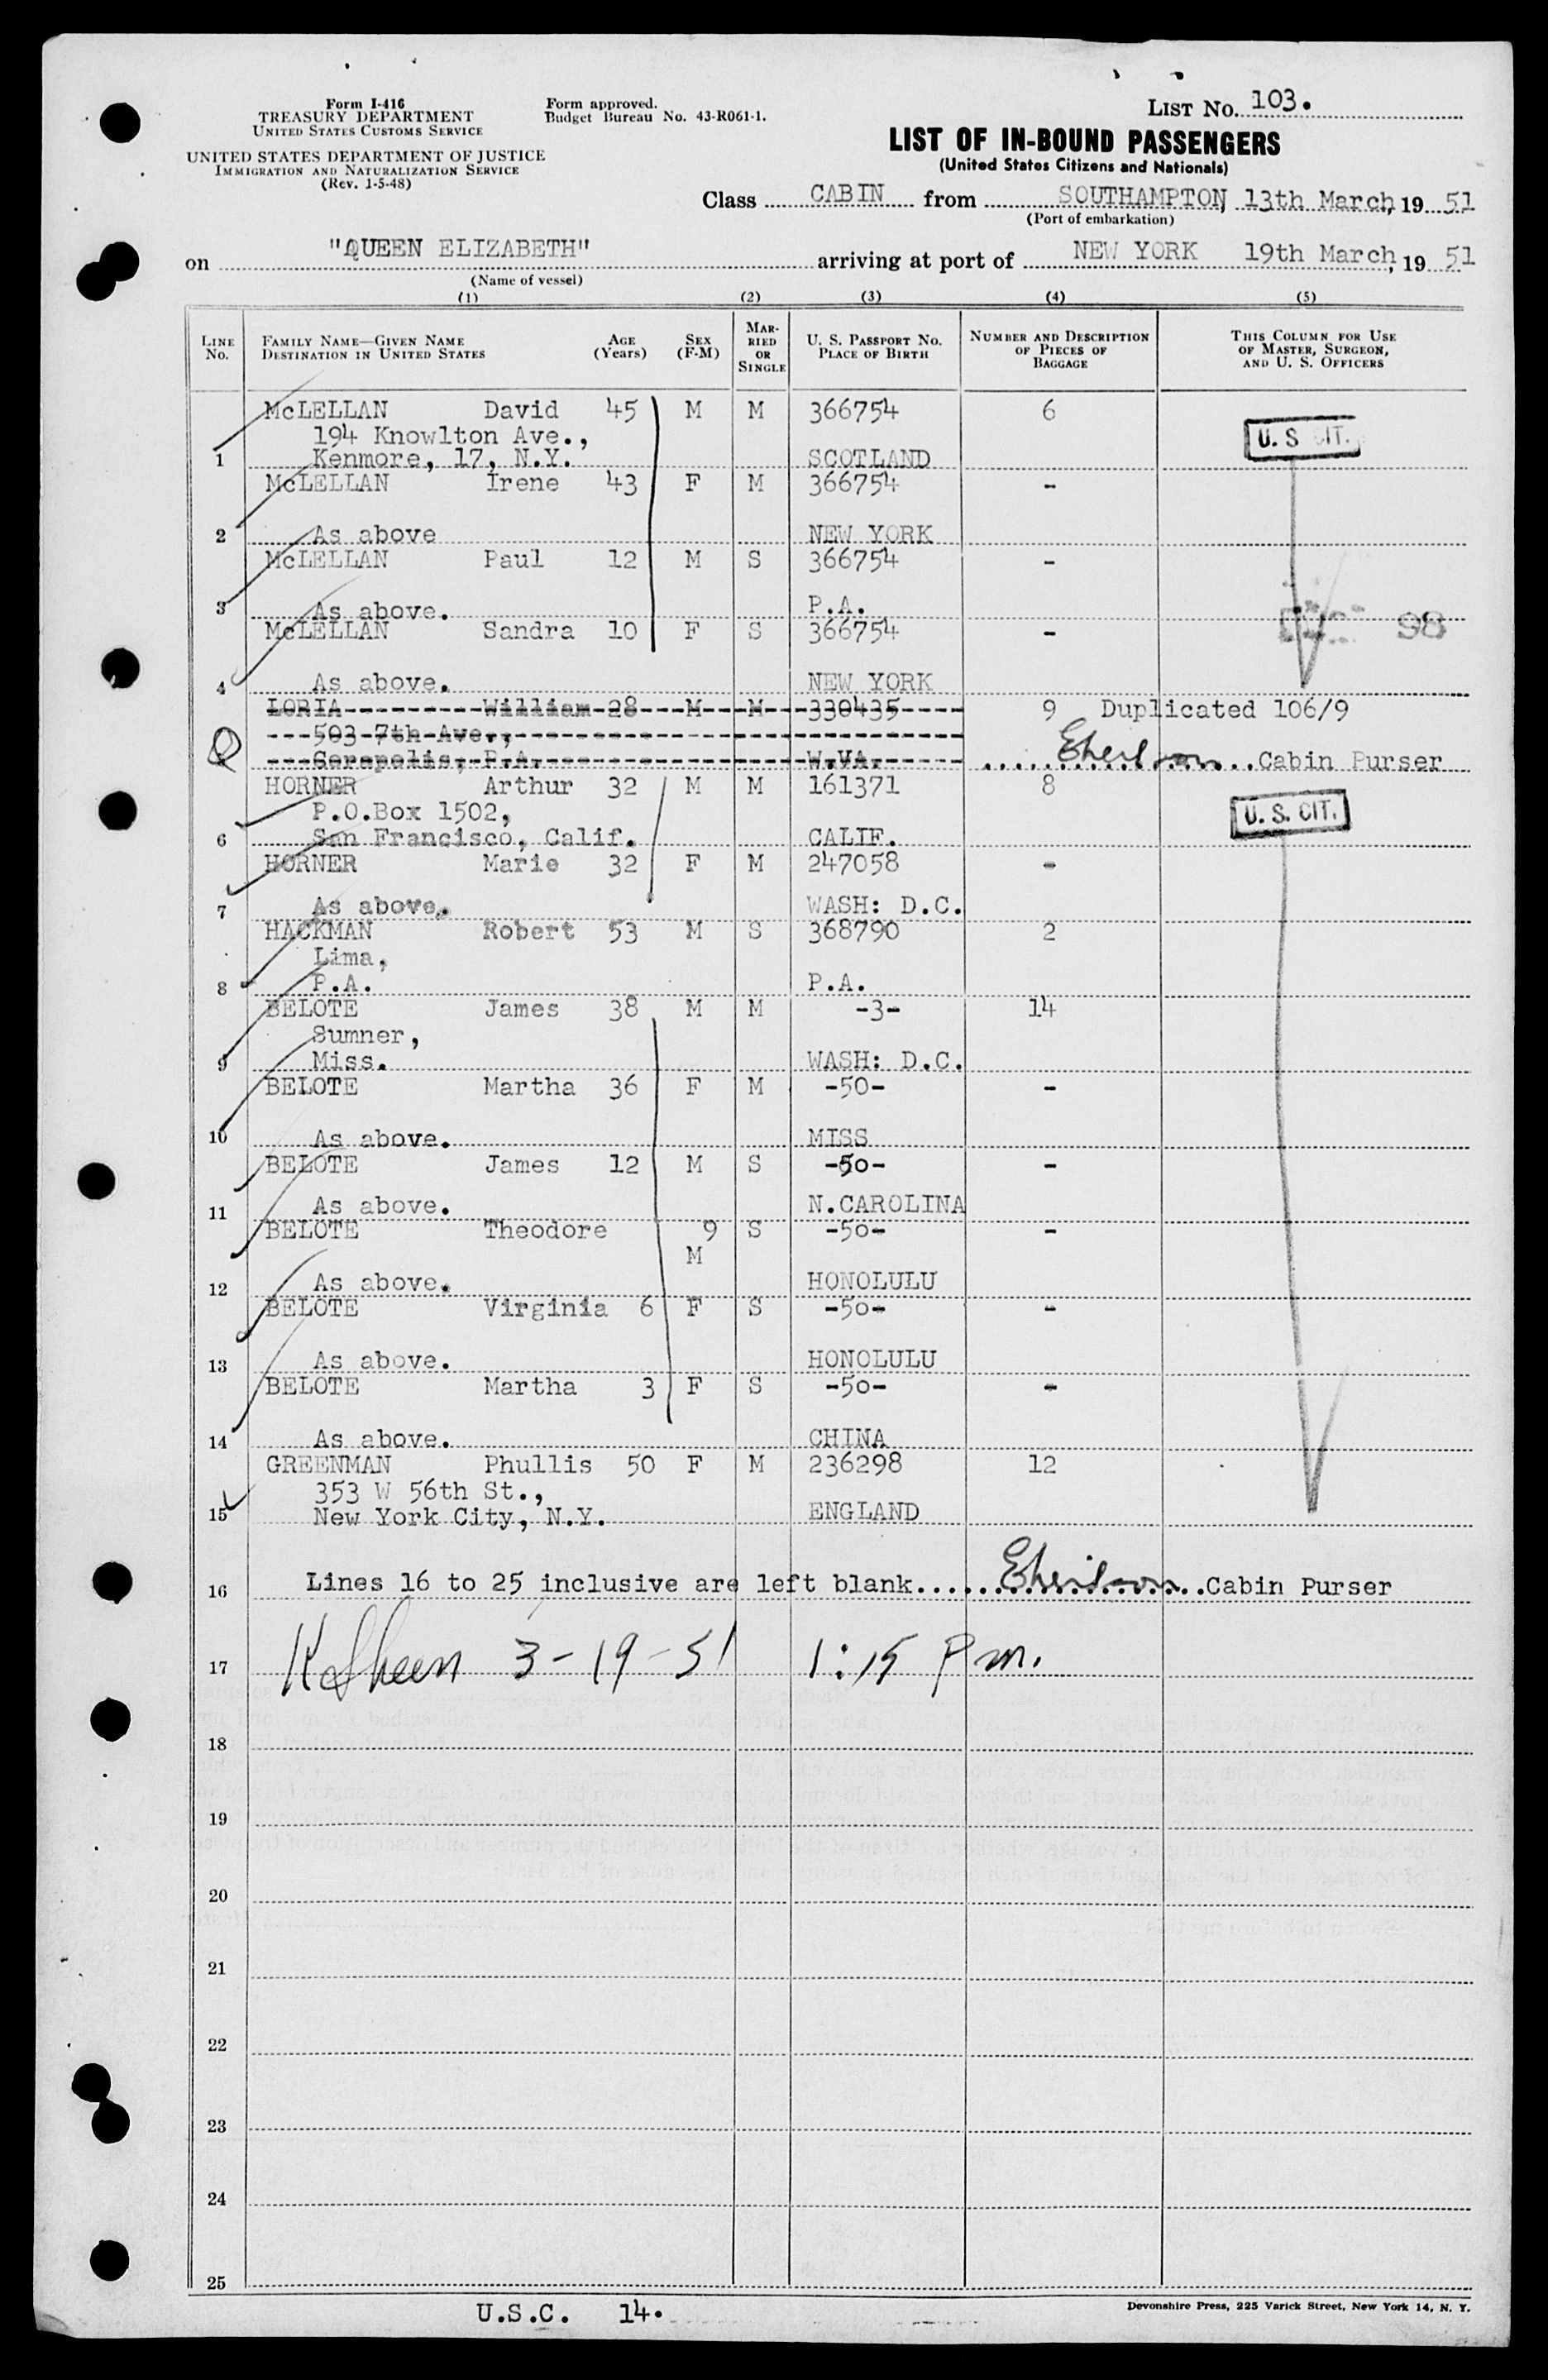 Form I-416
TREASURY DEPARTMENT
UNITED STATES CUSTOMS SERVICE
UNITED STATES DEPARTMENT OF JUSTICE
IMMIGRATION AND NATURALIZATION SERVICE
(Rev. 1-5-48)
Form approved.
Budget Bureau No. 43-R061-1.
LIST No. 103.
LIST OF IN-BOUND PASSENGERS
(United States Citizens and Nationals)
Class CABIN from SOUTHAMPTON, 13th March, 19 51
(Port of embarkation)
on "QUEEN ELIZABETH" arriving at port of NEW YORK 19th March, 19 51
(Name of vessel)
(1) (2) (3) (4) (5)
LINE No. FAMILY NAME—GIVEN NAME DESTINATION IN UNITED STATES AGE (Years) SEX (F-M) MARRIED OR SINGLE U. S. PASSPORT No. PLACE OF BIRTH NUMBER AND DESCRIPTION OF PIECES OF BAGGAGE THIS COLUMN FOR USE OF MASTER, SURGEON, AND U. S. OFFICERS
McLELLAN David 45 M M 366754 6
194 Knowlton Ave., U. S CIT.
1 Kenmore, 17, N.Y. SCOTLAND
McLELLAN Irene 43 F M 366754 -
2 As above NEW YORK
McLELLAN Paul 12 M S 366754 -
3 As above. P.A.
McLELLAN Sandra 10 F S 366754 - 98
4 As above. NEW YORK
LORIA William 28 M M 330435 9 Duplicated 106/9
503 7th Ave.,
Corapolis, P.A. W.VA. Cabin Purser
HORNER Arthur 32 M M 161371 8
P.O.Box 1502, U. S. CIT.
6 San Francisco, Calif. CALIF.
HORNER Marie 32 F M 247058 -
7 As above. WASH: D.C.
HACKMAN Robert 53 M S 368790 2
Lima,
8 P.A. P.A.
BELOTE James 38 M M -3- 14
Sumner,
9 Miss. WASH: D.C.
BELOTE Martha 36 F M -50- -
10 As above. MISS
BELOTE James 12 M S -50- -
11 As above. N.CAROLINA
BELOTE Theodore 9 S -50- -
M
12 As above. HONOLULU
BELOTE Virginia 6 F S -50- -
13 As above. HONOLULU
BELOTE Martha 3 F S -50- -
14 As above. CHINA
GREENMAN Phullis 50 F M 236298 12
353 W 56th St.,
15 New York City, N.Y. ENGLAND
16 Lines 16 to 25 inclusive are left blank Cabin Purser
17 3-19-51 1:15 Pm.
18
19
20
21
22
23
24
25
U.S.C. 14.
Devonshire Press, 225 Varick Street, New York 14, N. Y.